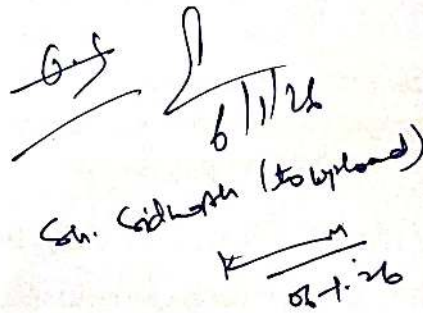 6/1/26
Sh. Sidharth (to upload)
06.1.26